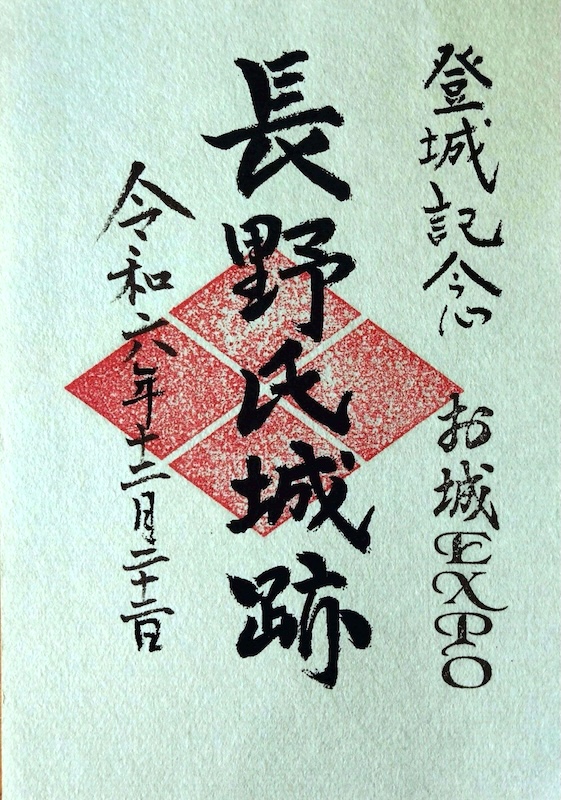 登城記念 お城EXPO
長野氏城跡
令和六年十二月二十二日